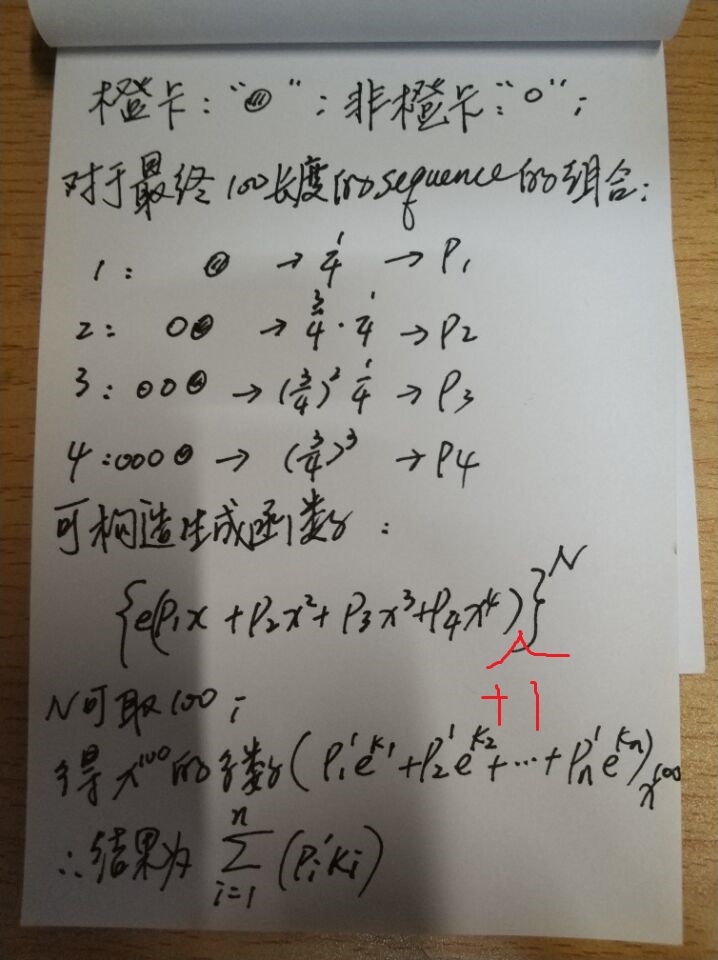 橙卡:“◎”;非橙卡:“○”;
对于最终100长度的sequence的组合:
1: ◎ → 1/4 → P₁
2: ○◎ → 3/4 · 1/4 → P₂
3: ○○◎ → (3/4)² 1/4 → P₃
4: ○○○◎ → (3/4)³ → P₄
可构造生成函数:
{e(P₁x + P₂x² + P₃x³ + P₄x⁴)}ᴺ
+1
N可取100;
得x¹⁰⁰的系数(P₁'e^{K₁} + P₂'e^{K₂} + … + Pₙ'e^{Kₙ})x¹⁰⁰
∴结果为 Σ_{i=1}^{n} (Pᵢ'Kᵢ)